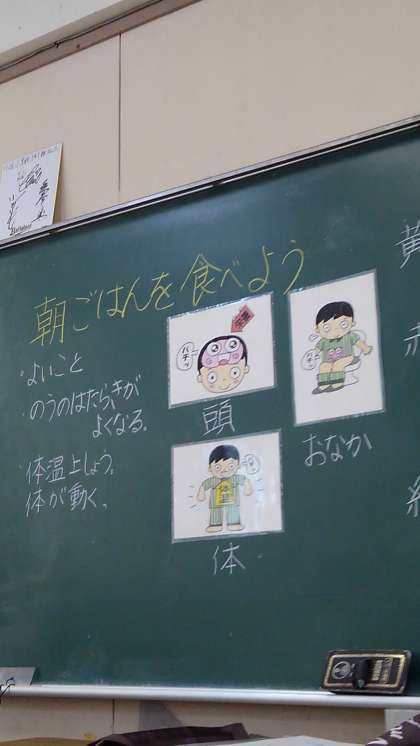 朝ごはんを食べよう
・よいこと
・のうのはたらきが
よくなる。
・体温上しょう。
体が動く。
栄養
パチッ
頭
おなか
体温
体
黄
赤
緑